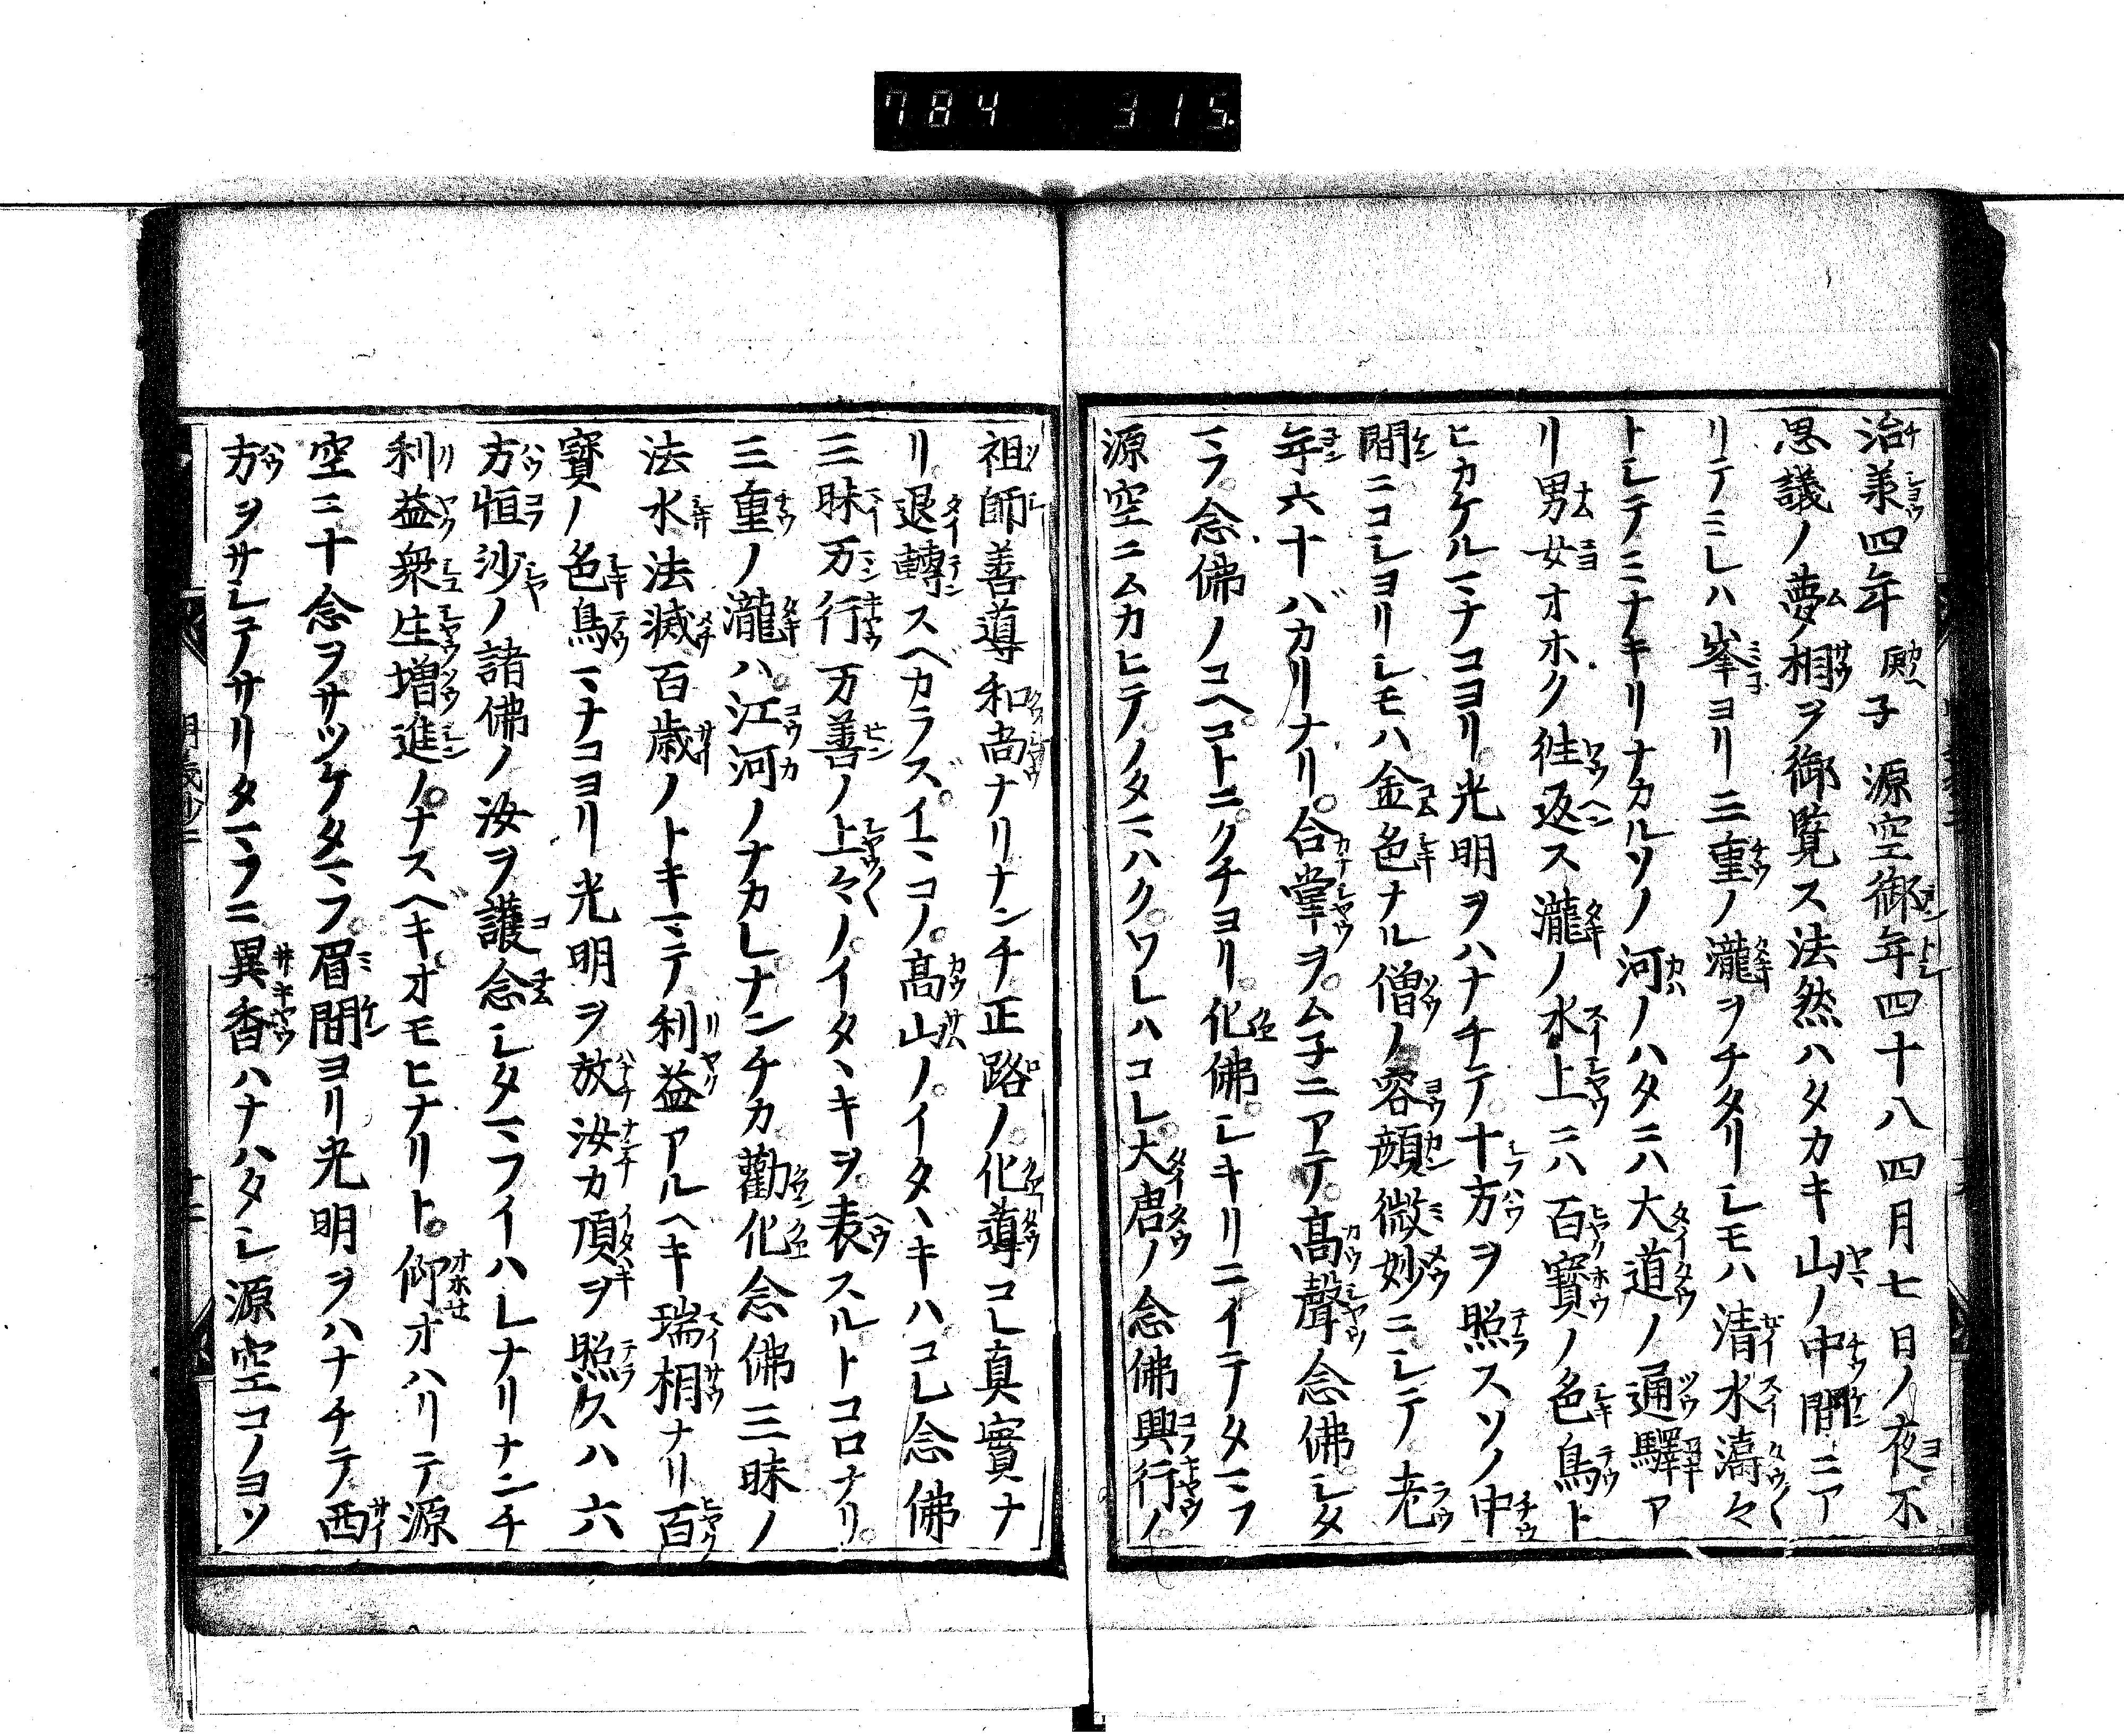 784 315
治承四年庚子源空御年四十八四月七日ノ夜不
思議ノ夢相ヲ御覧ス法然ハタカキ山ノ中間ニア
リテミレハ峯ヨリ三重ノ瀧ヲチタリシモハ清水濤々
トシテミナキリナカルソノ河ノハタニハ大道ノ通驛ア
リ男女オホク徃返ス瀧ノ水上ニハ百寳ノ色鳥ト
ヒカケルミナコヨリ光明ヲハナチテ十方ヲ照スソノ中
間ニコシヨリシモハ金色ナル僧ノ容顔微妙ニシテ老
年六十バカリナリ。合掌ヲ。ムネニアテ。髙聲念佛シタ
マフ。念佛ノコヘコトニ。クチヨリ。化佛。シキリニイテタマフ
源空ニムカヒテ。ノタマハク。ワレハコレ。大唐ノ念佛興行ノ
祖師善導和尚ナリナンチ正路ノ。化導コレ真實ナ
リ。退轉スベカラズ。イマコノ。髙山ノ。イタヽキハコレ念佛
三昧万行万善ノ上々ノ。イタヽキヲ。表スルトコロナリ。
三重ノ瀧ハ。江河ノナカレナンチカ勸化念佛三昧ノ
法水法滅百歳ノトキマテ利益アルヘキ瑞相ナリ百
寳ノ色鳥マナコヨリ光明ヲ放汝カ頂ヲ照久ハ六
方恒沙ノ諸佛ノ汝ヲ護念シタマフイハレナリナンチ
利益衆生増進ノ。ナスベキ。オモヒナリト。仰オハリテ源
空ニ十念ヲサツケタマフ。眉間ヨリ光明ヲハナチテ西
方ヲサシテサリタマフニ異香ハナハタシ源空コノヨソ